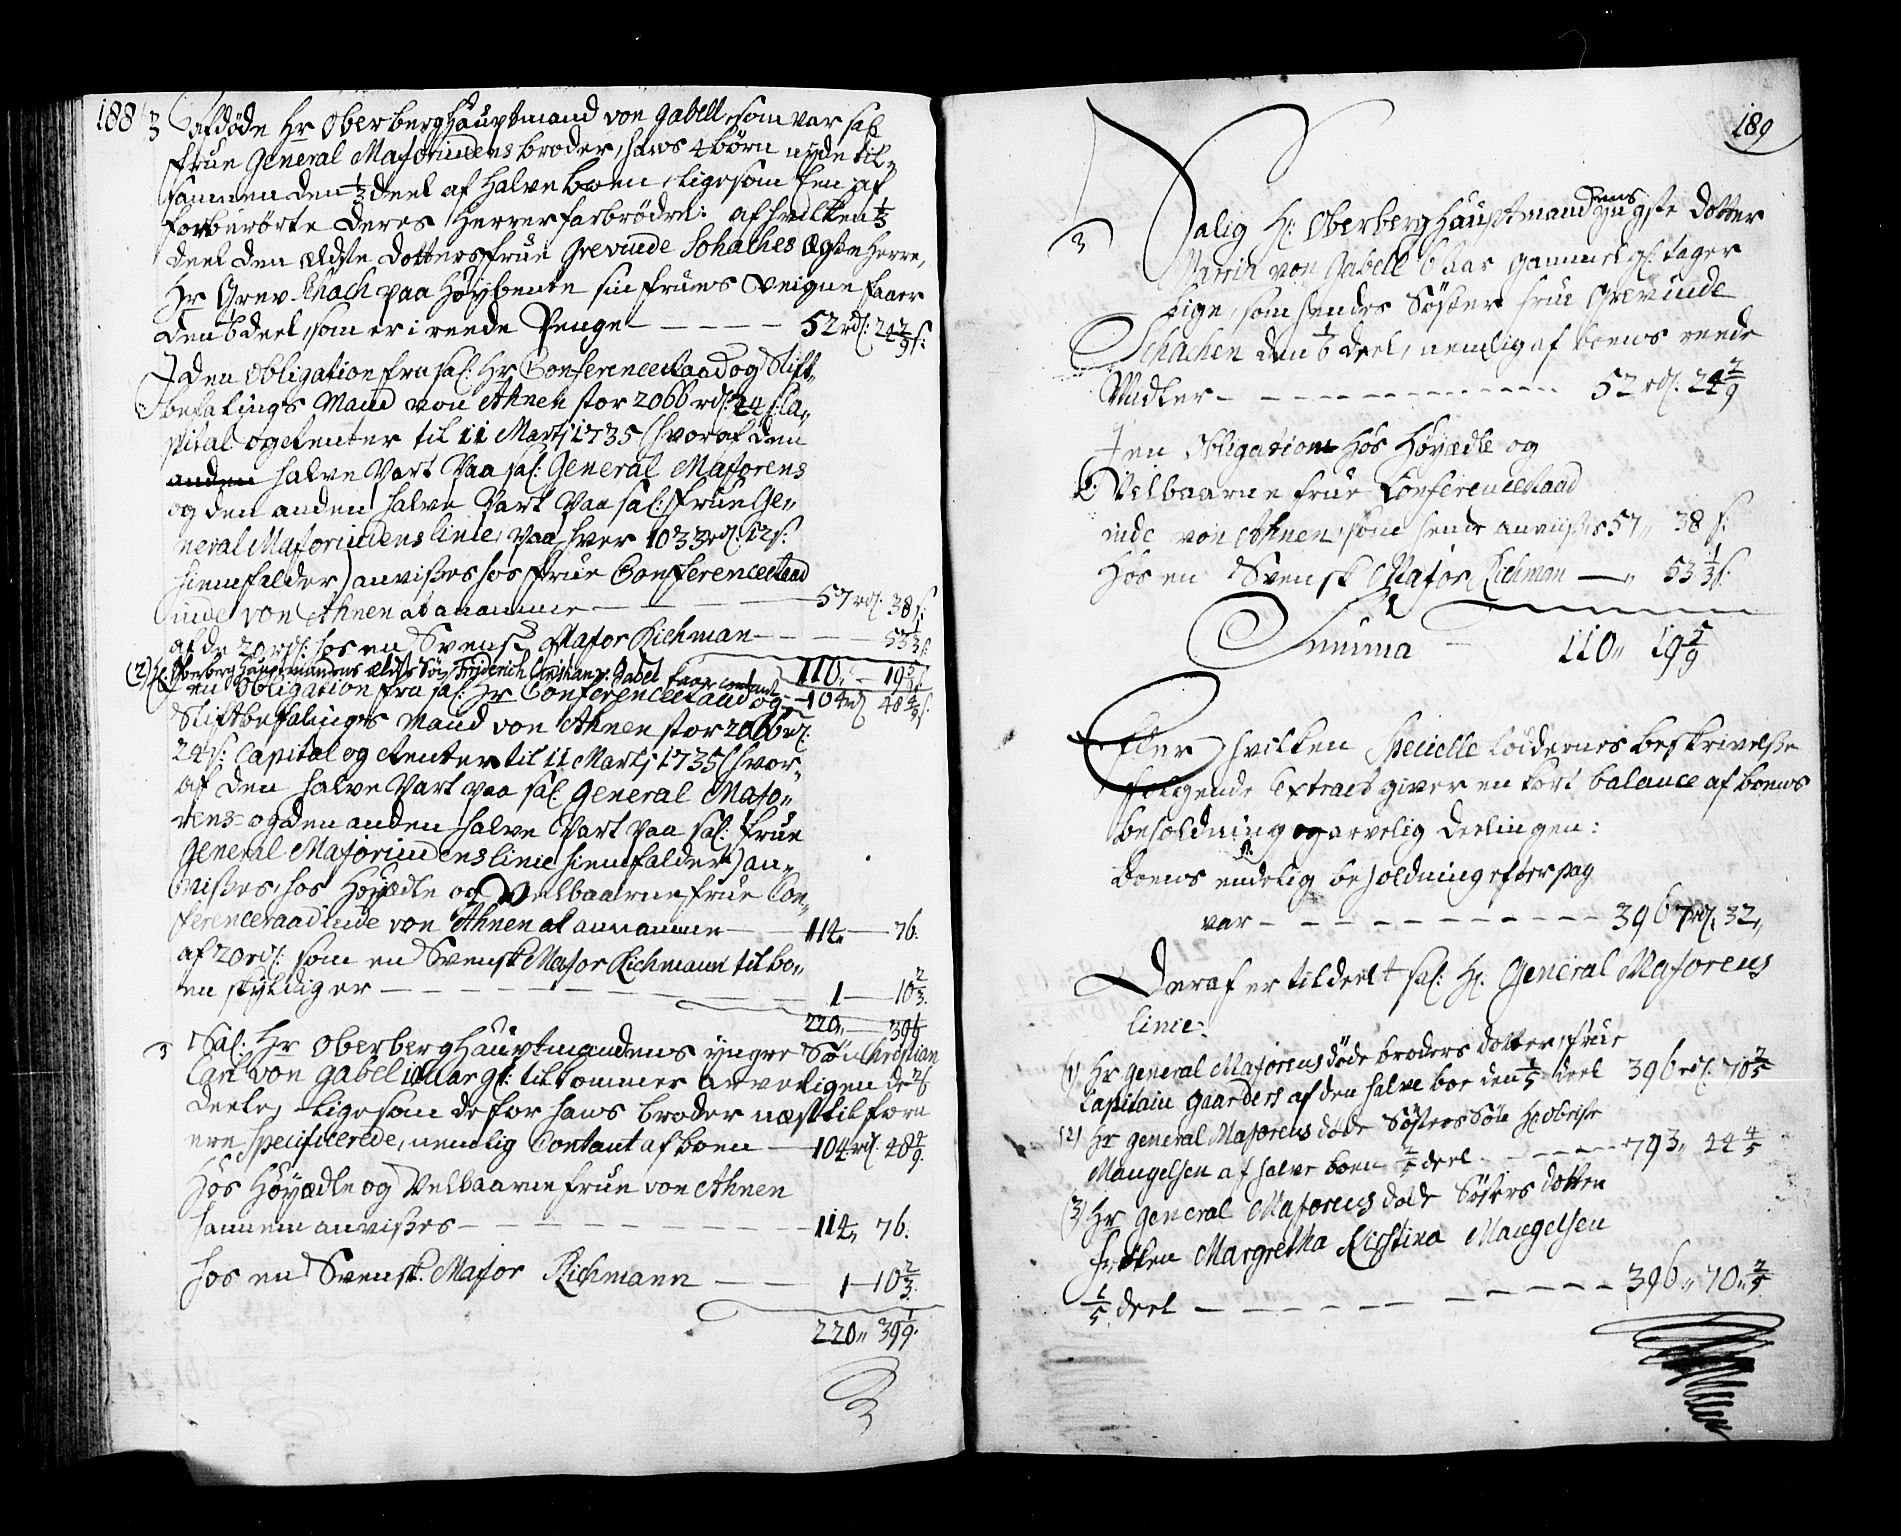 188
3 Afdøde Hr Oberberghauptmand von Gabell, som var sal
Frue General Majorindens broder, hans 4 børn nyde til-
sammen den 1/3 deel af halve boen, ligesom hen af
forberørte deres Herrer farbrödre: af hvilken 1/3
deel den ældste dotters Frue Grevinde Schaches ægte Herre,
Hr Grev Knach paa Høybente sin Frues Veigne faaer
den 6 deel, som er i reede Penge - - - - - 52 rd: 24 2/9 s:
I den Obligation fra sal: Hr Conferenceraad og Stift-
befalings Mand von Ahnen stor 2066 rd: 24 s: Ca-
pital og Renter til 11 Martj 1735 (hvoraf den
anden halve Part paa sal: General Majorens
og den anden halve Part paa sal: Frue Ge-
neral Majorindens linie, paa hver 1033 rd: 12 s:
hiemfalder) anvises hos Frue Conferenceraad
inde von Ahnen at anamme - - - 57 rd: 38 s:
af de 20 rd: hos en Svensk Major Richman - - - 53 1/3 s:
110 " - 19 5/9
(2) Hr: Oberberg Hauptmandens ældste Søn Friderich Christian v: Gabel faar contant - 104 rd 48 4/9 s:
I en Obligation fra sal: Hr Conferenceraad og
Stiftbefalings Mand von Ahnen stor 2066 rd:
24 s: Capital og Renter til 11 Martj 1735 (hvor-
af den halve Part paa sal General Majo-
rens og den anden halve Part paa sal: Frue
General Majorindens linie hiemfalder) an-
vises, hos Høyædle og Velbaarne Frue Con-
ferenceraadinde von Ahnen at annamme - 114 " - 76.
af 20 rd: som en Svensk Major Richmann til bo-
en skyldig er - - - - - - - 1 - 10 2/3.
220 " - 39 1/9
3 Sal: Hr Oberberghauptmandens yngre Søn Christian
Carl von Gabel 11 aar gl: tilkommer arveligen de 2/6
deele, ligesom de for hans broder næst tilforn
ere specificerede, nemlig Contant af boen - 104 rd: 48 4/9.
Hos Høyædle og Velbaarne Frue von Ahnen
hannem anvises - - - - - - - - 114 " 76.
hos en Svensk: Major Richmann - - - 1 - 10 2/3.
220 " 39 1/9.
189
3 Salig Hr: Oberberghauptmandens yngste dotter
Maria von Gabell 6 aar gammel gl: tager
lige, som hendes Søster Frue Grevinde
Schachen den 1/6 deel, nemlig af boens reede
Midler - - - - - - - - - - 52 rd: 24 2/9
I en Obligation hos Høyædle og
Velbaarne Frue Conferenceraad
inde von Ahnen, som hende anvises 57 " 38 s:
Hos en Svensk Major Richman - " 53 1/3 s:
Summa - 110 " 19 5/9
Efter hvilken Specielle loddernes beskrivelse
følgende Extract giver en kort balance af boens
beholdning og arvelig deelingen:
Boens endelig beholdning efter pag
var - - - - - - - - - - 3967 rd: 32 "
Deraf er tildeelt sal: Hr: General Majorens
linie:
(1) Hr General Majorens døde broders dotter, Frue
Capitain Gaarders af den halve boe den 1/5 deel 396 rd: 70 2/5
(2) Hr General Majorens døde Søsters Søn Hr: Obriste
Mangelsen af halve boen 2/5 deel - - - - - 793 " 44 4/5
(3) Hr General Majorens døde Søsters dotter
Frøken Margretha Kirstina Mangelsen
1/5 deel - - - - - - - - - 396 " 70 " 2/5